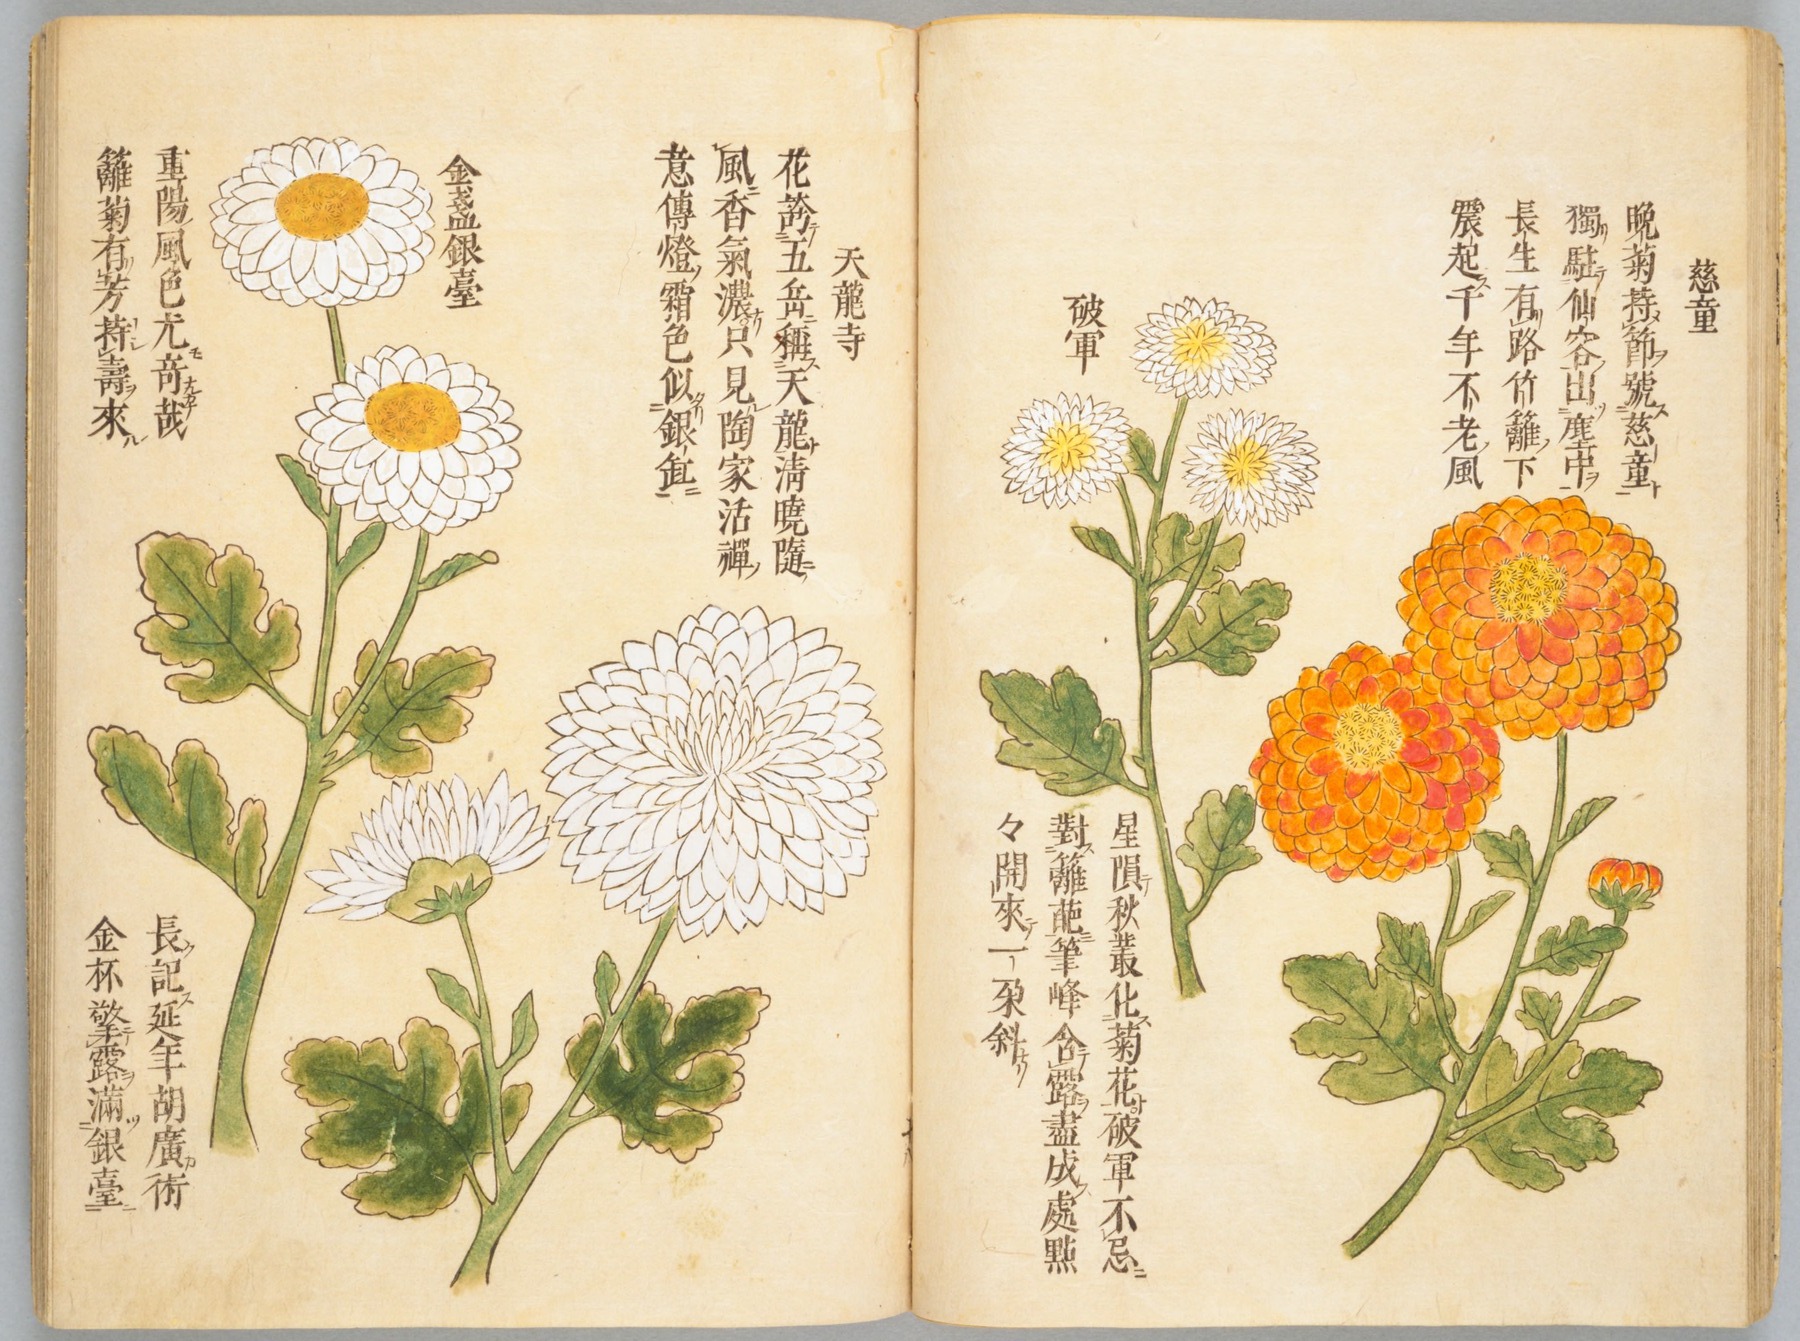 慈童
晩菊持節號慈童
獨駐仙容出塵中
長生有路竹籬下
震起千年不老風
破軍
星隕秋叢化菊花破軍不忌
對籬葩筆峰含露盡成處點
々開來一朶斜
天龍寺
花誇五岳稱天龍清曉隨
風香氣濃只見陶家活禪
意傳燈霜色似銀缸
金盞銀臺
重陽風色尤奇哉
籬菊有芳持壽來
長記延年胡廣術
金杯擎露滿銀臺